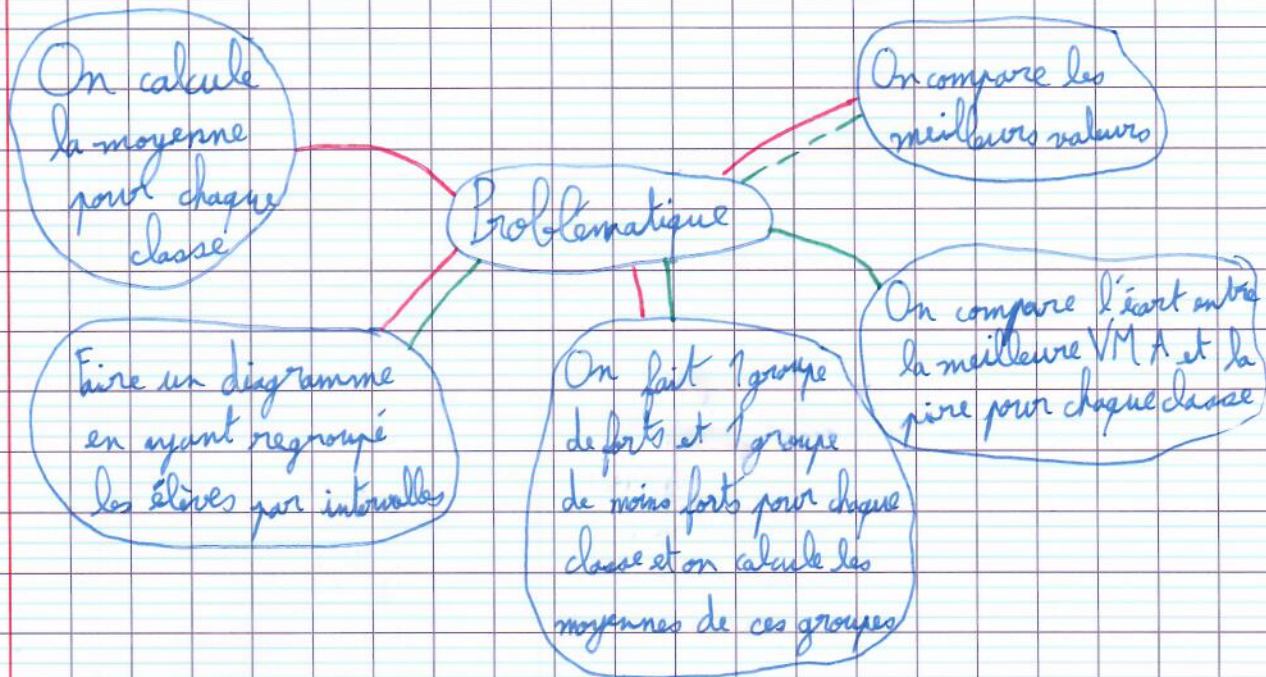 On calcule
la moyenne
pour chaque
classe
On compare les
meilleurs valeurs
Problématique
On compare l'écart entre
la meilleure VMA et la
pire pour chaque classe
Faire un diagramme
en ayant regroupé
les élèves par intervalles
On fait 1 groupe
de forts et 1 groupe
de moins forts pour chaque
classe et on calcule les
moyennes de ces groupes